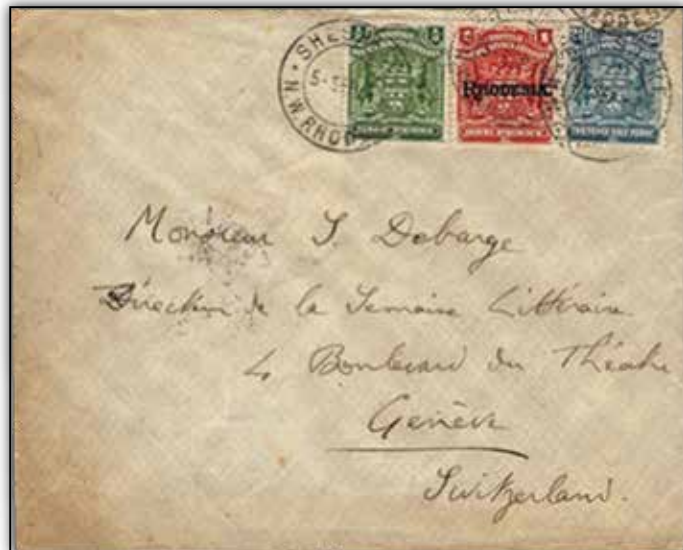 SHES
5-S
N.W. RHOD
RHODESIA
Monsieur S. Debarge
Direction de la Semaine Littéraire
4 Boulevard du Théatre
Genève
Switzerland.